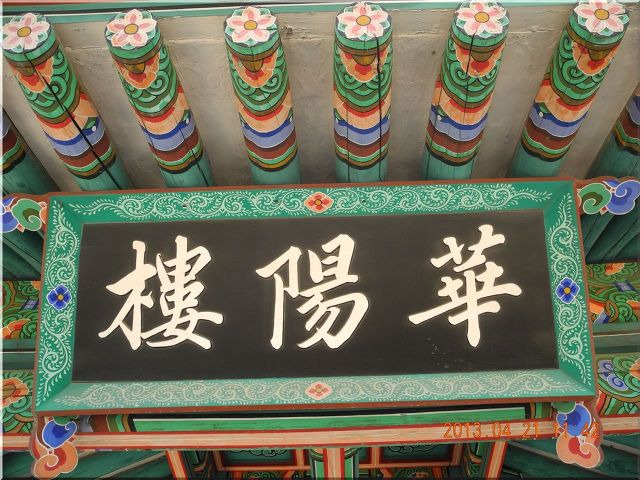 華陽樓
2013.04.21 11:42